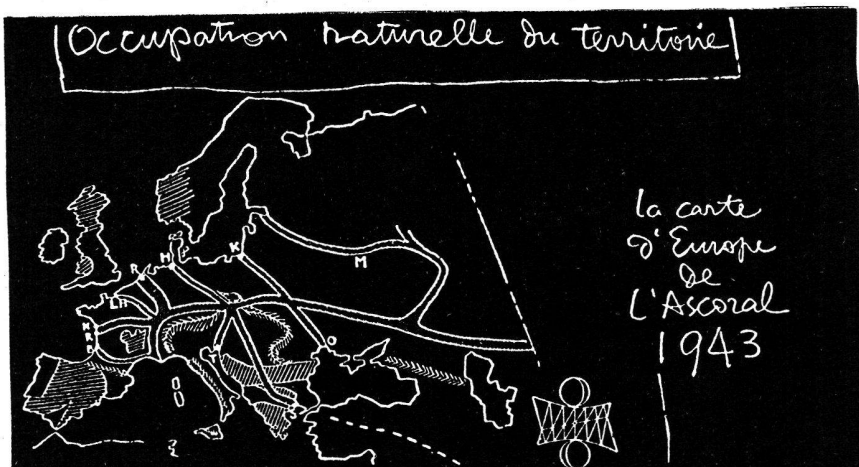 Occupation naturelle du territoire
la carte
d'Europe
de
L'Ascoral
1943
K
H
R
M
LH
N
R
B
O
T
S